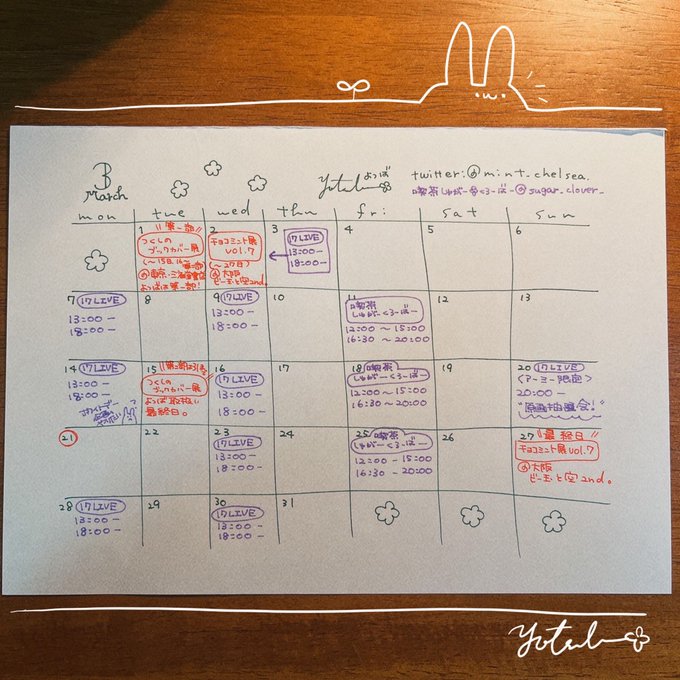 3
March
Yotsuba
よつば
twitter:@mint_chelsea_
喫茶しゅがーくろーばー@sugar_clover_
mon tue wed thu fri sat sun
1
第一部
つくしの
ブックカバー展
(〜15日,16〜第二部)
@東京・三省堂書店
よつばは第一部!
2
チョコミント展
vol.7
(〜27日)
@大阪
ビー玉と空2nd。
3
17LIVE
13:00−
18:00−
4
5
6
7
17LIVE
13:00−
18:00−
8
9
17LIVE
13:00−
18:00−
10
11
喫茶
しゅがーくろーばー
12:00〜15:00
16:30〜20:00
12
13
14
17LIVE
13:00−
18:00−
ホワイトデー
15
つくしの
ブックカバー展
よつば取扱い
最終日。
16
17LIVE
13:00−
18:00−
17
18
喫茶
しゅがーくろーばー
12:00〜15:00
16:30〜20:00
19
20
17LIVE
<アーミー限定>
20:00−
"原画抽選会!"
21
22
23
17LIVE
13:00−
18:00−
24
25
喫茶
しゅがーくろーばー
12:00−15:00
16:30−20:00
26
27
最終日
チョコミント展vol.7
@大阪
ビー玉と空2nd。
28
17LIVE
13:00−
18:00−
29
30
17LIVE
13:00−
18:00−
31
Yotsuba